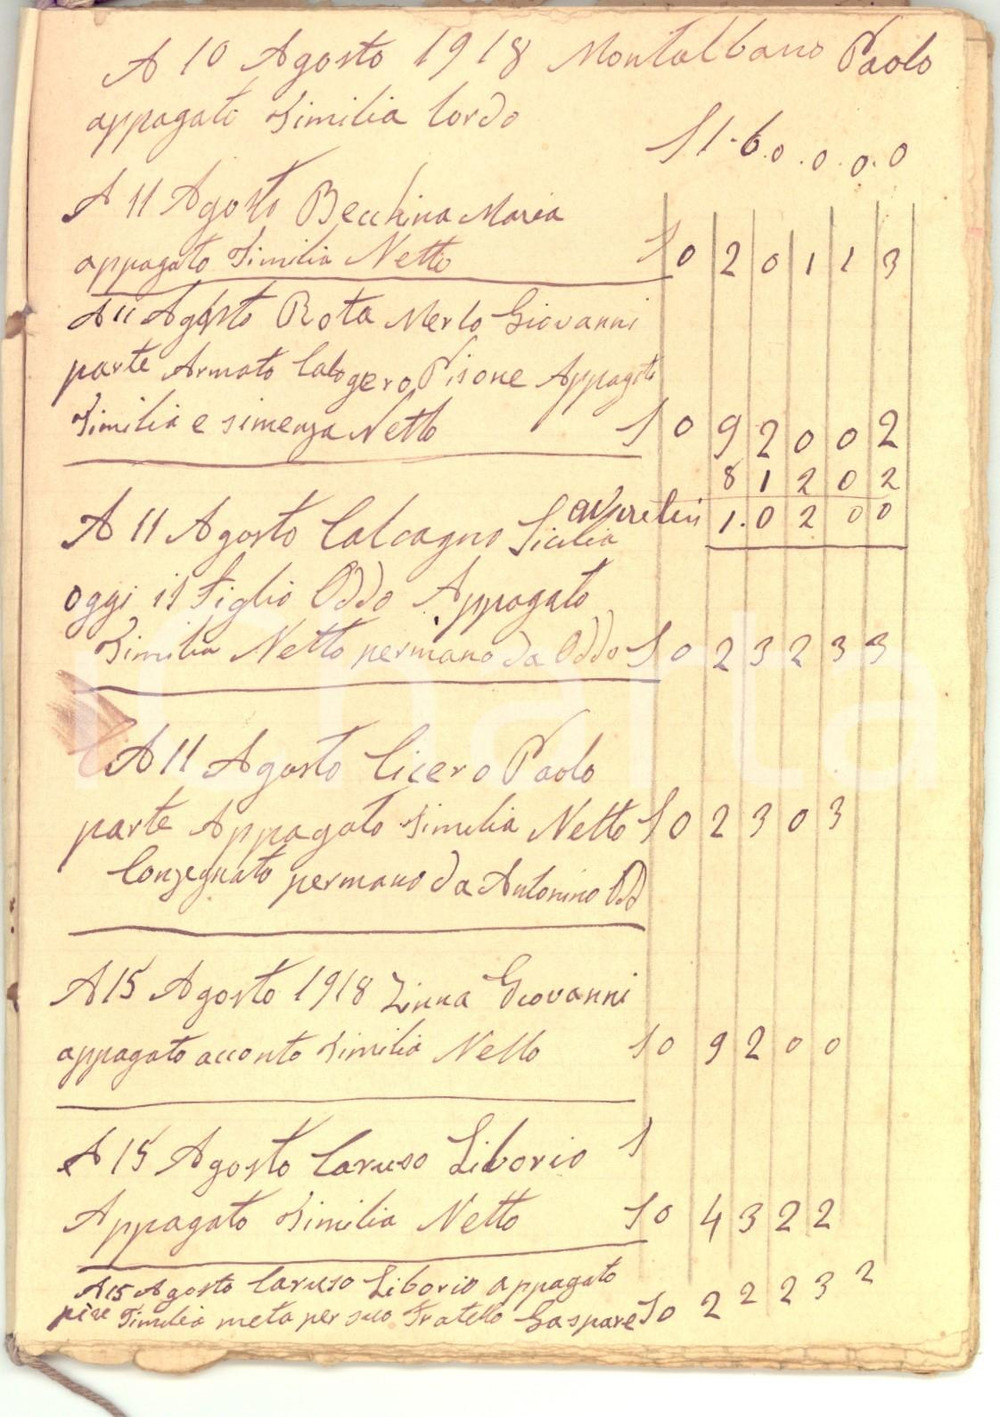 A 10 Agosto 1918 Montalbano Paolo
appagato Similia lordo
S 1-6.0.0.0.0
A 11 Agosto Becchina Maria
appagato Similia Netto S 0 2 0 1 1 3
A 11 Agosto Rota Merlo Giovanni
parte Armato Calogero Pisone Appagato
Similia e simenza Netto S 0 9 2 0 0 2
8 1 2 0 2
1.0 2 0 0
A 11 Agosto Calcagno Sicilia
oggi il Figlio Oddo Appagato
Similia Netto permano da Oddo S 0 2 3 2 3 3
A 11 Agosto Cicero Paolo
parte Appagato Similia Netto S 0 2 3 0 3
Conzegnato permano da Antonino Od
A 15 Agosto 1918 Zinna Giovanni
appagato acconto Similia Netto S 0 9 2 0 0
A 15 Agosto Caruso Liborio S
Appagato Similia Netto S 0 4 3 2 2
A 15 Agosto Caruso Liborio appagato
Similia meta per suo Fratello Gaspare S 0 2 2 2 3 2
iCharta